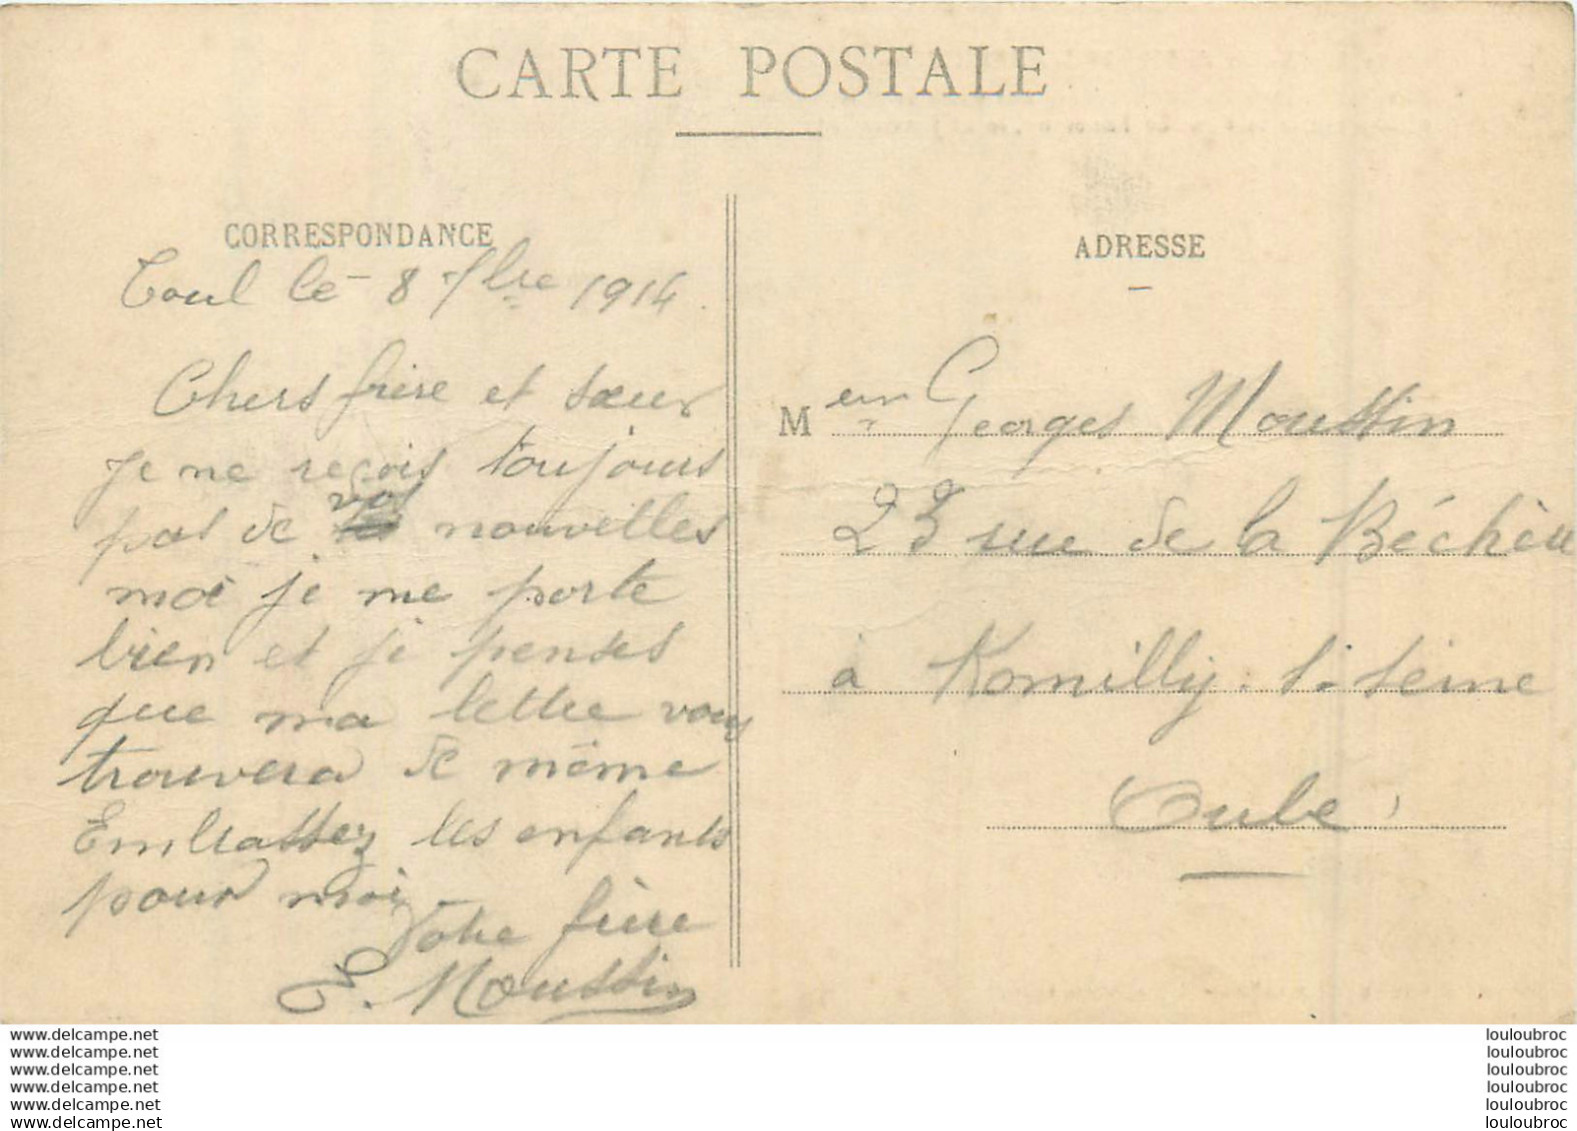 CARTE POSTALE
CORRESPONDANCE
Toul le 8 7bre 1914.
Chers frère et sœur
Je ne reçois toujours
pas de vos nouvelles
moi je me porte
bien et je penses
que ma lettre vous
trouvera de même
Embrassez les enfants
pour moi
Votre frère
E. Moussin
ADRESSE
Meur Georges Moussin
23 rue de la Béchère
à Romilly. s. seine
Aube
www.delcampe.net
www.delcampe.net
www.delcampe.net
www.delcampe.net
www.delcampe.net
www.delcampe.net
louloubroc
louloubroc
louloubroc
louloubroc
louloubroc
louloubroc